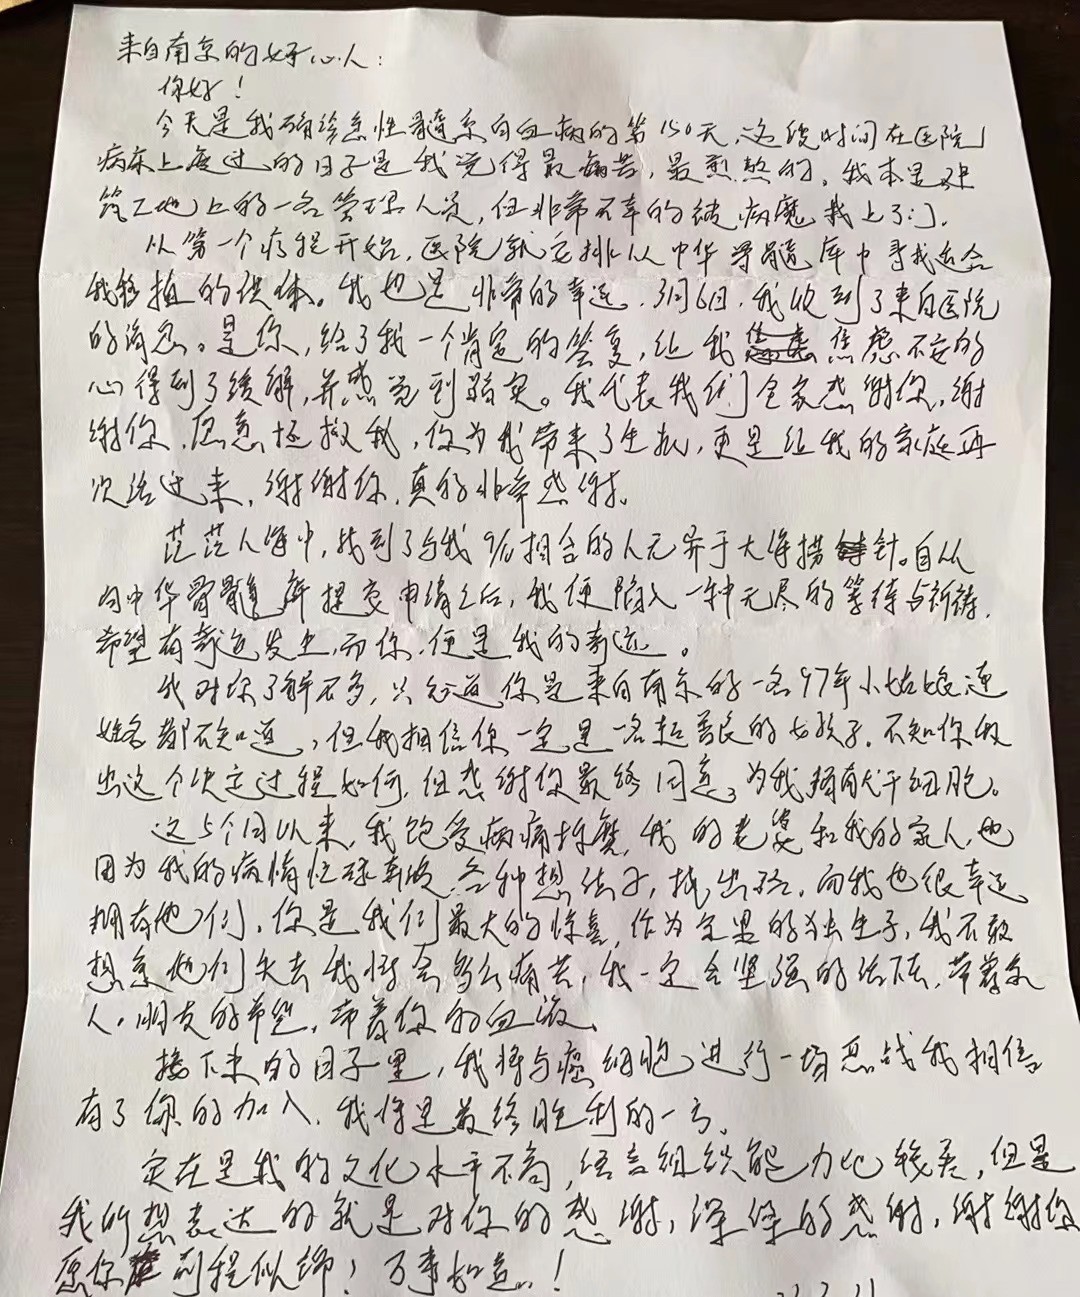 来自南京的好心人：
你好！
今天是我确诊急性髓系白血病的第150天，这段时间在医院
病床上度过的日子是我觉得最痛苦，最煎熬的，我本是建
筑工地上的一名管理人员，但非常不幸的被病魔找上了门，
从第一个疗程开始，医院就安排从中华骨髓库中寻找适合
我移植的供体。我也是非常的幸运，3月6日，我收到了来自医院
的消息。是你，给了我一个肯定的答复，让我焦虑不安的
心得到了缓解，并感觉到踏实。我代表我们全家感谢你，谢
谢你，愿意拯救我，你为我带来了生机，更是让我的家庭再
次活过来，谢谢你，真的非常感谢。
茫茫人海中，找到了与我9/10相合的人无异于大海捞针。自从
向中华骨髓库提交申请之后，我便陷入一种无尽的等待与祈祷，
希望有奇迹发生，而你，便是我的奇迹。
我对你了解不多，只知道你是来自南京的一名97年小姑娘连
姓名都不知道，但我相信你一定是一名超善良的女孩子，不知你做
出这个决定过程如何，但感谢你最终同意，为我捐献干细胞。
这5个月以来，我饱受病痛折磨，我的老婆和我的家人，也
因为我的病情忙碌奔波，各种想法子，找出路，而我也很幸运
拥有他们，你是我们最大的惊喜，作为家里的独生子，我不敢
想象他们失去我将会多么痛苦，我一定会坚强的活下去，带着家
人，朋友的希望，带着你的血液、
接下来的日子里，我将与癌细胞进行一场恶战我相信
有了你的加入，我将是最终胜利的一方。
实在是我的文化水平不高，语言组织能力比较差，但是
我所想表达的就是对你的感谢，深深的感谢，谢谢你
愿你前程似锦！万事如意！